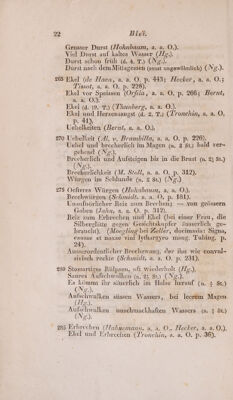 22 Blei.
Grosser Durst (Hohnbaum, a. a. O.).
Viel Durst auf kaltes Wasser (Hg.).
Durst schon früh (d. 4. T.) (Ng.).
Durst nach dem Mittagessen (sonst ungewöhnlich) (Ng.).
265 Ekel (de Haen, a. a. O. p. 443; Hecker, a. a. O.;
Tissot, a. a. O. p. 228).
Ekel vor Speisen (Orfila, a. a. O. p. 266; Bernt,
a. a. O.).
Ekel (d. 19. T.) (Thunberg, a. a. O.).
Ekel und Herzensangst (d. 2. T.) (Tronchin, a. a. O.
p. 41).
Uebelkeiten (Bernt, a. a. O.).
270 Uebelkeit (Al. v. Brambilla, a. a. O. p. 226).
Uebel und brecherlich im Magen (n. 2 St.) bald ver-
gehend (Ng.).
Brecherlich und Aufsteigen bis in die Brust (n. 2½ St.)
(Ng.).
Brecherlichkeit (M. Stoll, a. a. O. p. 312).
Würgen im Schlunde (n. 2 St.) (Ng.).
275 Oefteres Würgen (Hohnbaum, a. a. O.).
Brechwürgen (Schmidt, a. a. O. p. 181).
Unaufhörlicher Reiz zum Brechen — von grössern
Gaben (Jahn, a. a. O. p. 312).
Reiz zum Erbrechen und Ekel (bei einer Frau, die
Silberglätte gegen Gesichtskupfer äusserlich ge-
braucht). (Moegling bei Zeller, docimasia: Signa,
causae et noxae vini lythargyro mang. Tubing. p.
24).
Ausserordentlicher Brechreiz, der ihn wie convul-
sivisch reckte (Schmidt, a. a. O. p. 231).
280 Stossartiges Rülpsen, oft wiederholt (Hg.).
Saures Aufschwulken (n. 2½ St.) (Ng.).
Es kömmt ihr säuerlich im Halse herauf
(Ng.).
Aufschwulken süssen Wassers, bei leerem Magen
(Hg.).
Aufschwulken unschmackhaften Wassers
(Ng.).
285 Erbrechen (Hahnemann, a. a. O., Hecker, a. a. O.).
Ekel und Erbrechen (Tronchin, a. a. O. p. 36).